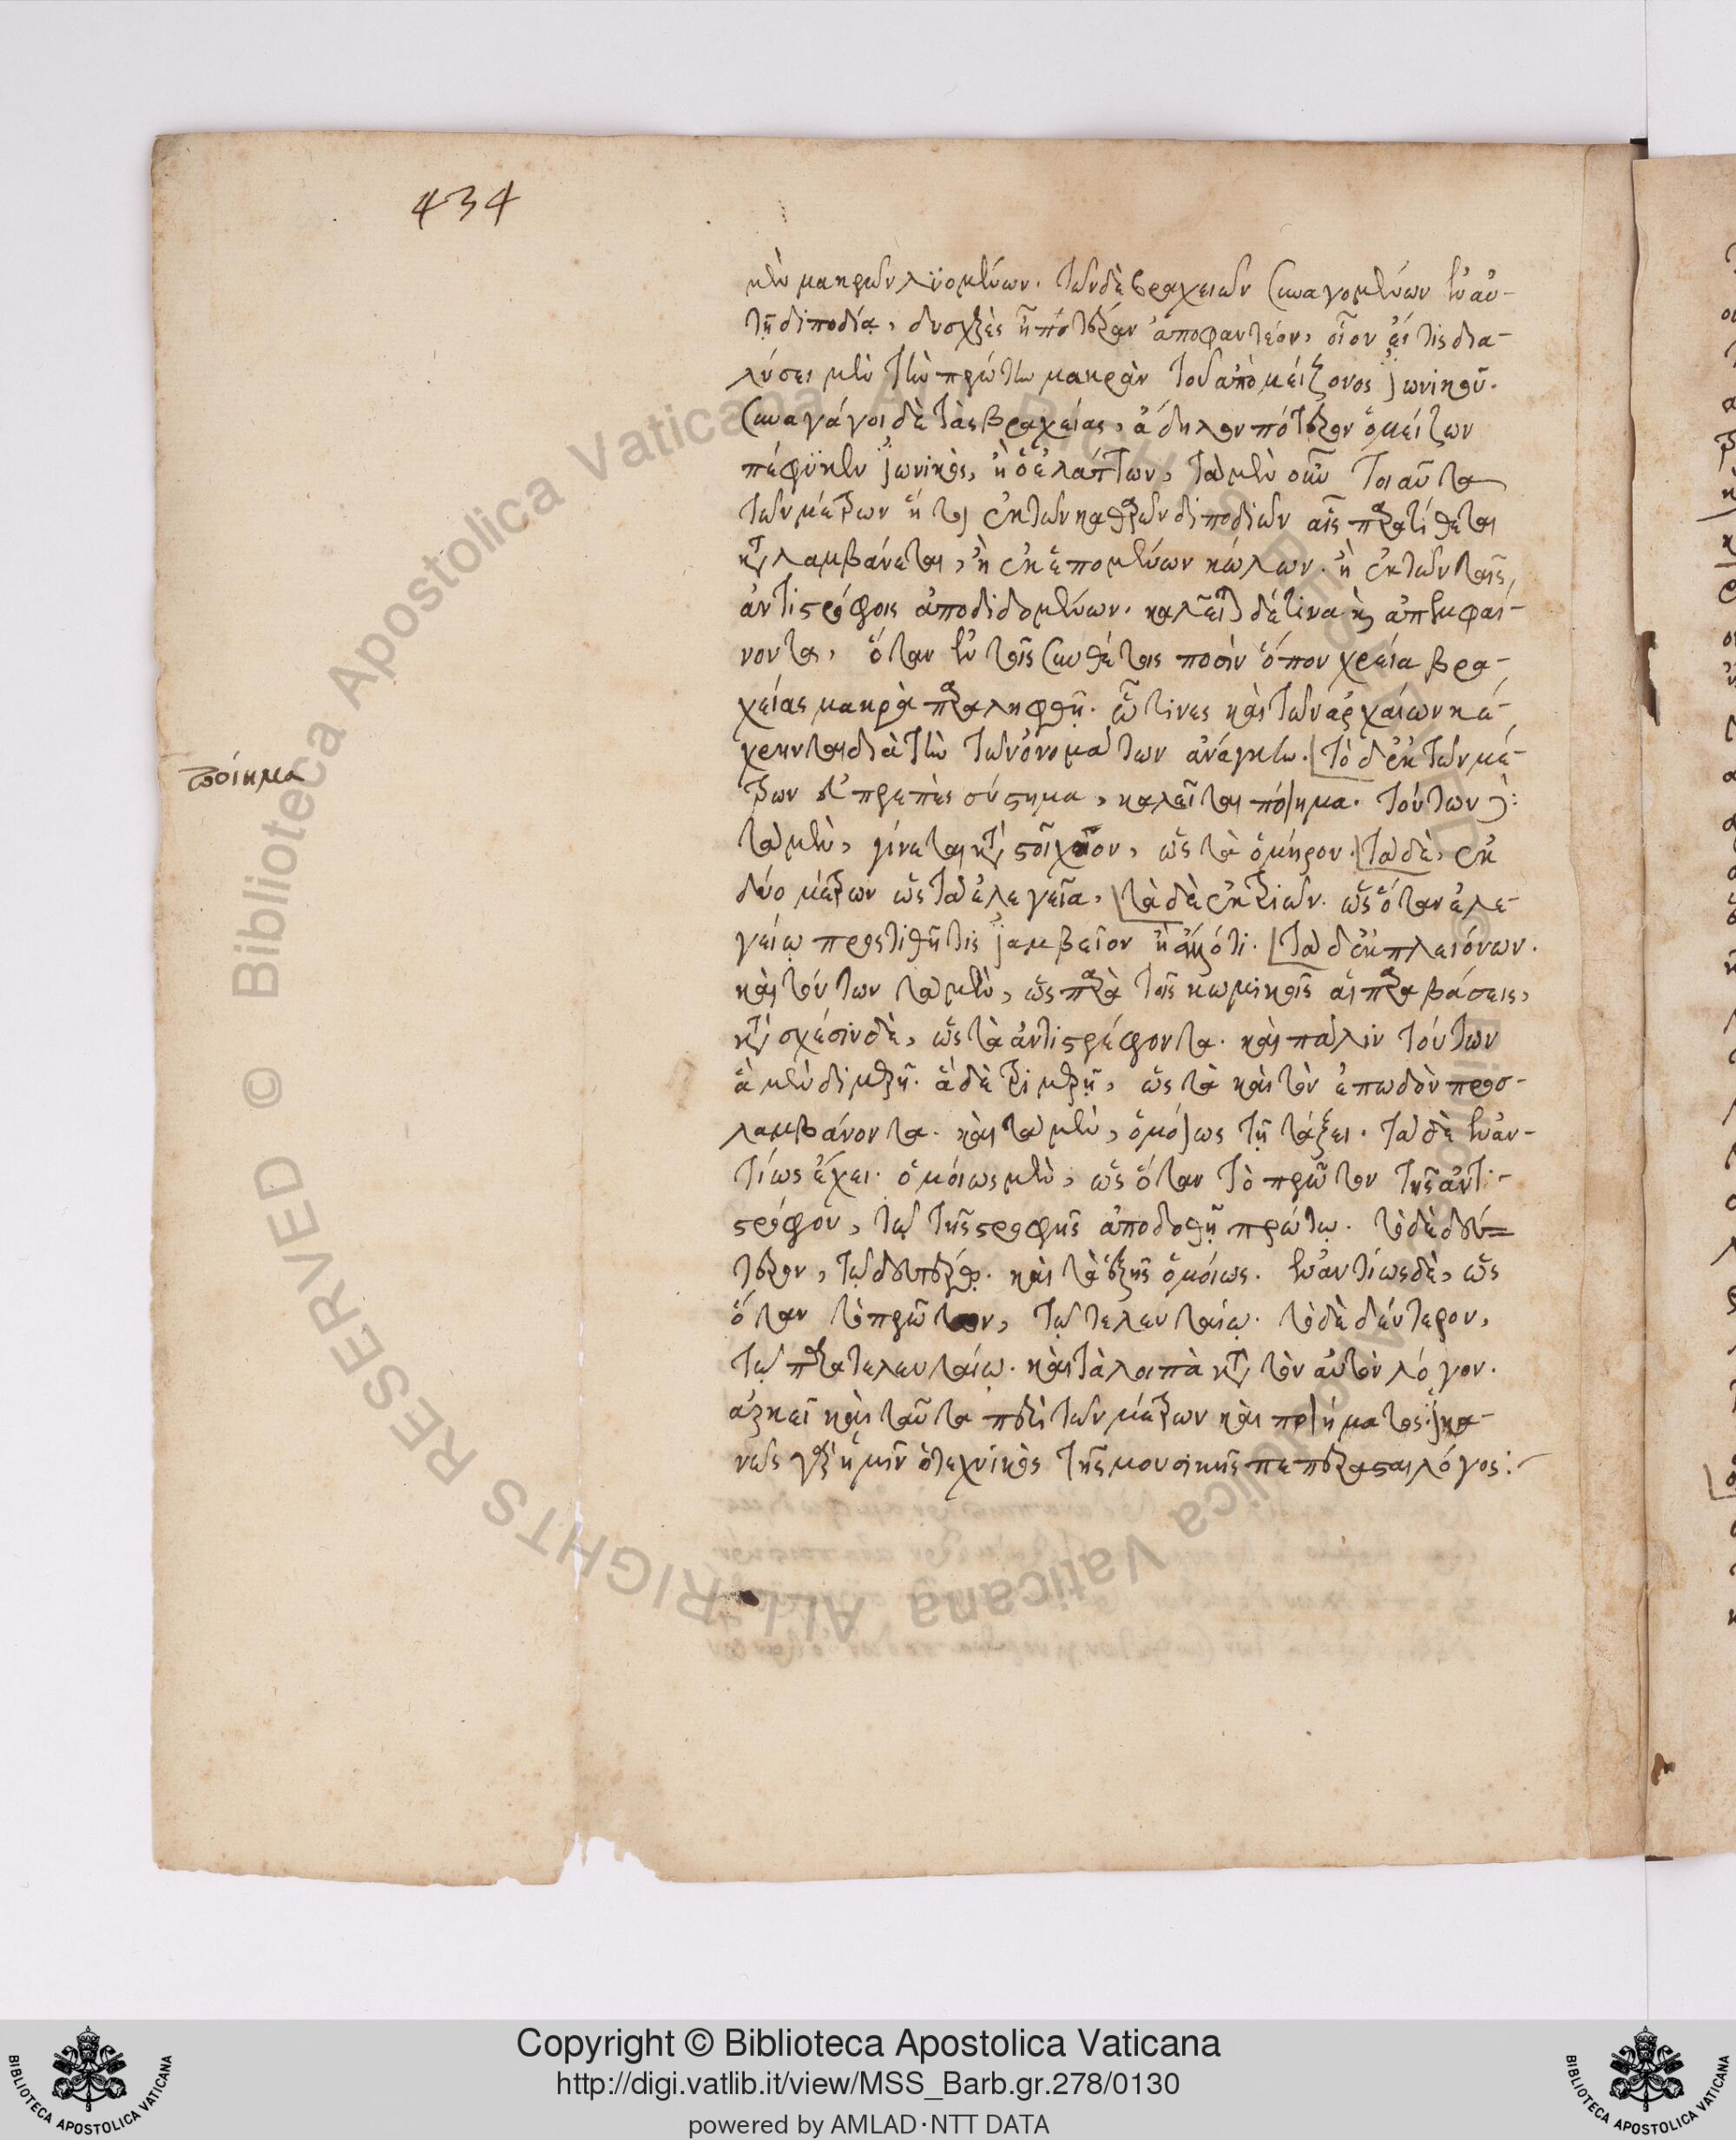 434
μὲν μακρῶν λϋομένων. τῶν δὲ βραχειῶν συναγομένων ἐν αὐ-
τῇ διποδίᾳ, δυσχερὲς ἦ πότερον ἀποφαντέον, οἷον εἴ τις δια-
λύσει μὲν τὴν πρώτην μακρὰν τοῦ ἀπὸ μείζονος ἰωνικοῦ.
συναγάγοι δὲ τὰς βραχείας, ἄδηλον πότερον ὁ μείζων
πέφϋκεν ἰωνικὸς, ἢ ὁ ἐλάττων, τὰ μὲν οὖν τοιαῦτα
τῶν μέτρων ἤτοι ἐκ τῶν καθαρῶν διποδιῶν αἷς παρατίθεται
καταλαμβάνεται, ἢ ἐκ ἑπομένων κώλων. ἢ ἐκ τῶν ταῖς
ἀντιστρόφοις ἀποδιδομένων. καλεῖται δέ τινα καὶ ἀπεμφαί-
νοντα, ὅταν ἐν τοῖς συνθέτοις ποσὶν ὅπου χρεία βρα-
χείας μακρὰ παραληφθῇ. ᾧ τινες καὶ τῶν ἀρχαίων κέ-
χρηνται διὰ τὴν τῶν ὀνομάτων ἀνάγκην. τὸ δ' ἐκ τῶν μέ-
ποίημα
τρων εὐπρεπὲς σύστημα, καλεῖται ποίημα. τούτων δὲ:
τὰ μὲν, γίνεται κατὰ στοῖχον, ὡς τὰ ὁμήρου. τὰ δὲ, ἐκ
δύο μέτρων ὡς τὰ ἐλεγεῖα, τὰ δὲ ἐκ τριῶν. ὡς ὅταν ἐλε-
γείῳ προστιθῇ τις ἰαμβεῖον ἢ ἄλλό τι. τὰ δ' ἐκ πλειόνων.
καὶ τούτων τὰ μὲν, ὡς παρὰ τοῖς κωμικοῖς αἱ παραβάσεις,
κατὰ σχέσιν δὲ, ὡς τὰ ἀντιστρέφοντα. καὶ πάλιν τούτων
ἃ μὲν διμερῆ. ἃ δὲ τριμερῆ, ὡς τὰ καὶ τὸν ἐπωδὸν προσ-
λαμβάνοντα. καὶ τὰ μὲν, ὁμοίως τῇ τάξει. τὰ δὲ ἐναν-
τίως ἔχει. ὁμοίως μὲν, ὡς ὅταν τὸ πρῶτον τῆς ἀντι-
στρόφου, τῷ τῆς στροφῆς ἀποδοθῇ πρώτῳ. τὸ δὲ δεύ=
τερον, τῷ δευτέρῳ. καὶ τὰ ἑξῆς ὁμοίως. ἐναντίως δὲ, ὡς
ὅταν τὸ πρῶτον, τῷ τελευταίῳ. τὸ δὲ δεύτερον,
τῷ παρατελευταίῳ. καὶ τὰ λοιπὰ κατὰ τὸν αὐτὸν λόγον.
ἀρκεῖ καὶ ταῦτα περὶ τῶν μέτρων καὶ ποιήματος. ἱκα-
νῶς γὰρ ἡμῖν ὁ τεχνικὸς τῆς μουσικῆς πεπέρασται λόγος:
Copyright © Biblioteca Apostolica Vaticana
http://digi.vatlib.it/view/MSS_Barb.gr.278/0130
powered by AMLAD·NTT DATA
BIBLIOTECA APOSTOLICA VATICANA
BIBLIOTECA APOSTOLICA VATICANA
© Biblioteca Apostolica Vaticana ALL RIGHTS RESERVED
© Biblioteca Apostolica Vaticana ALL RIGHTS RESERVED